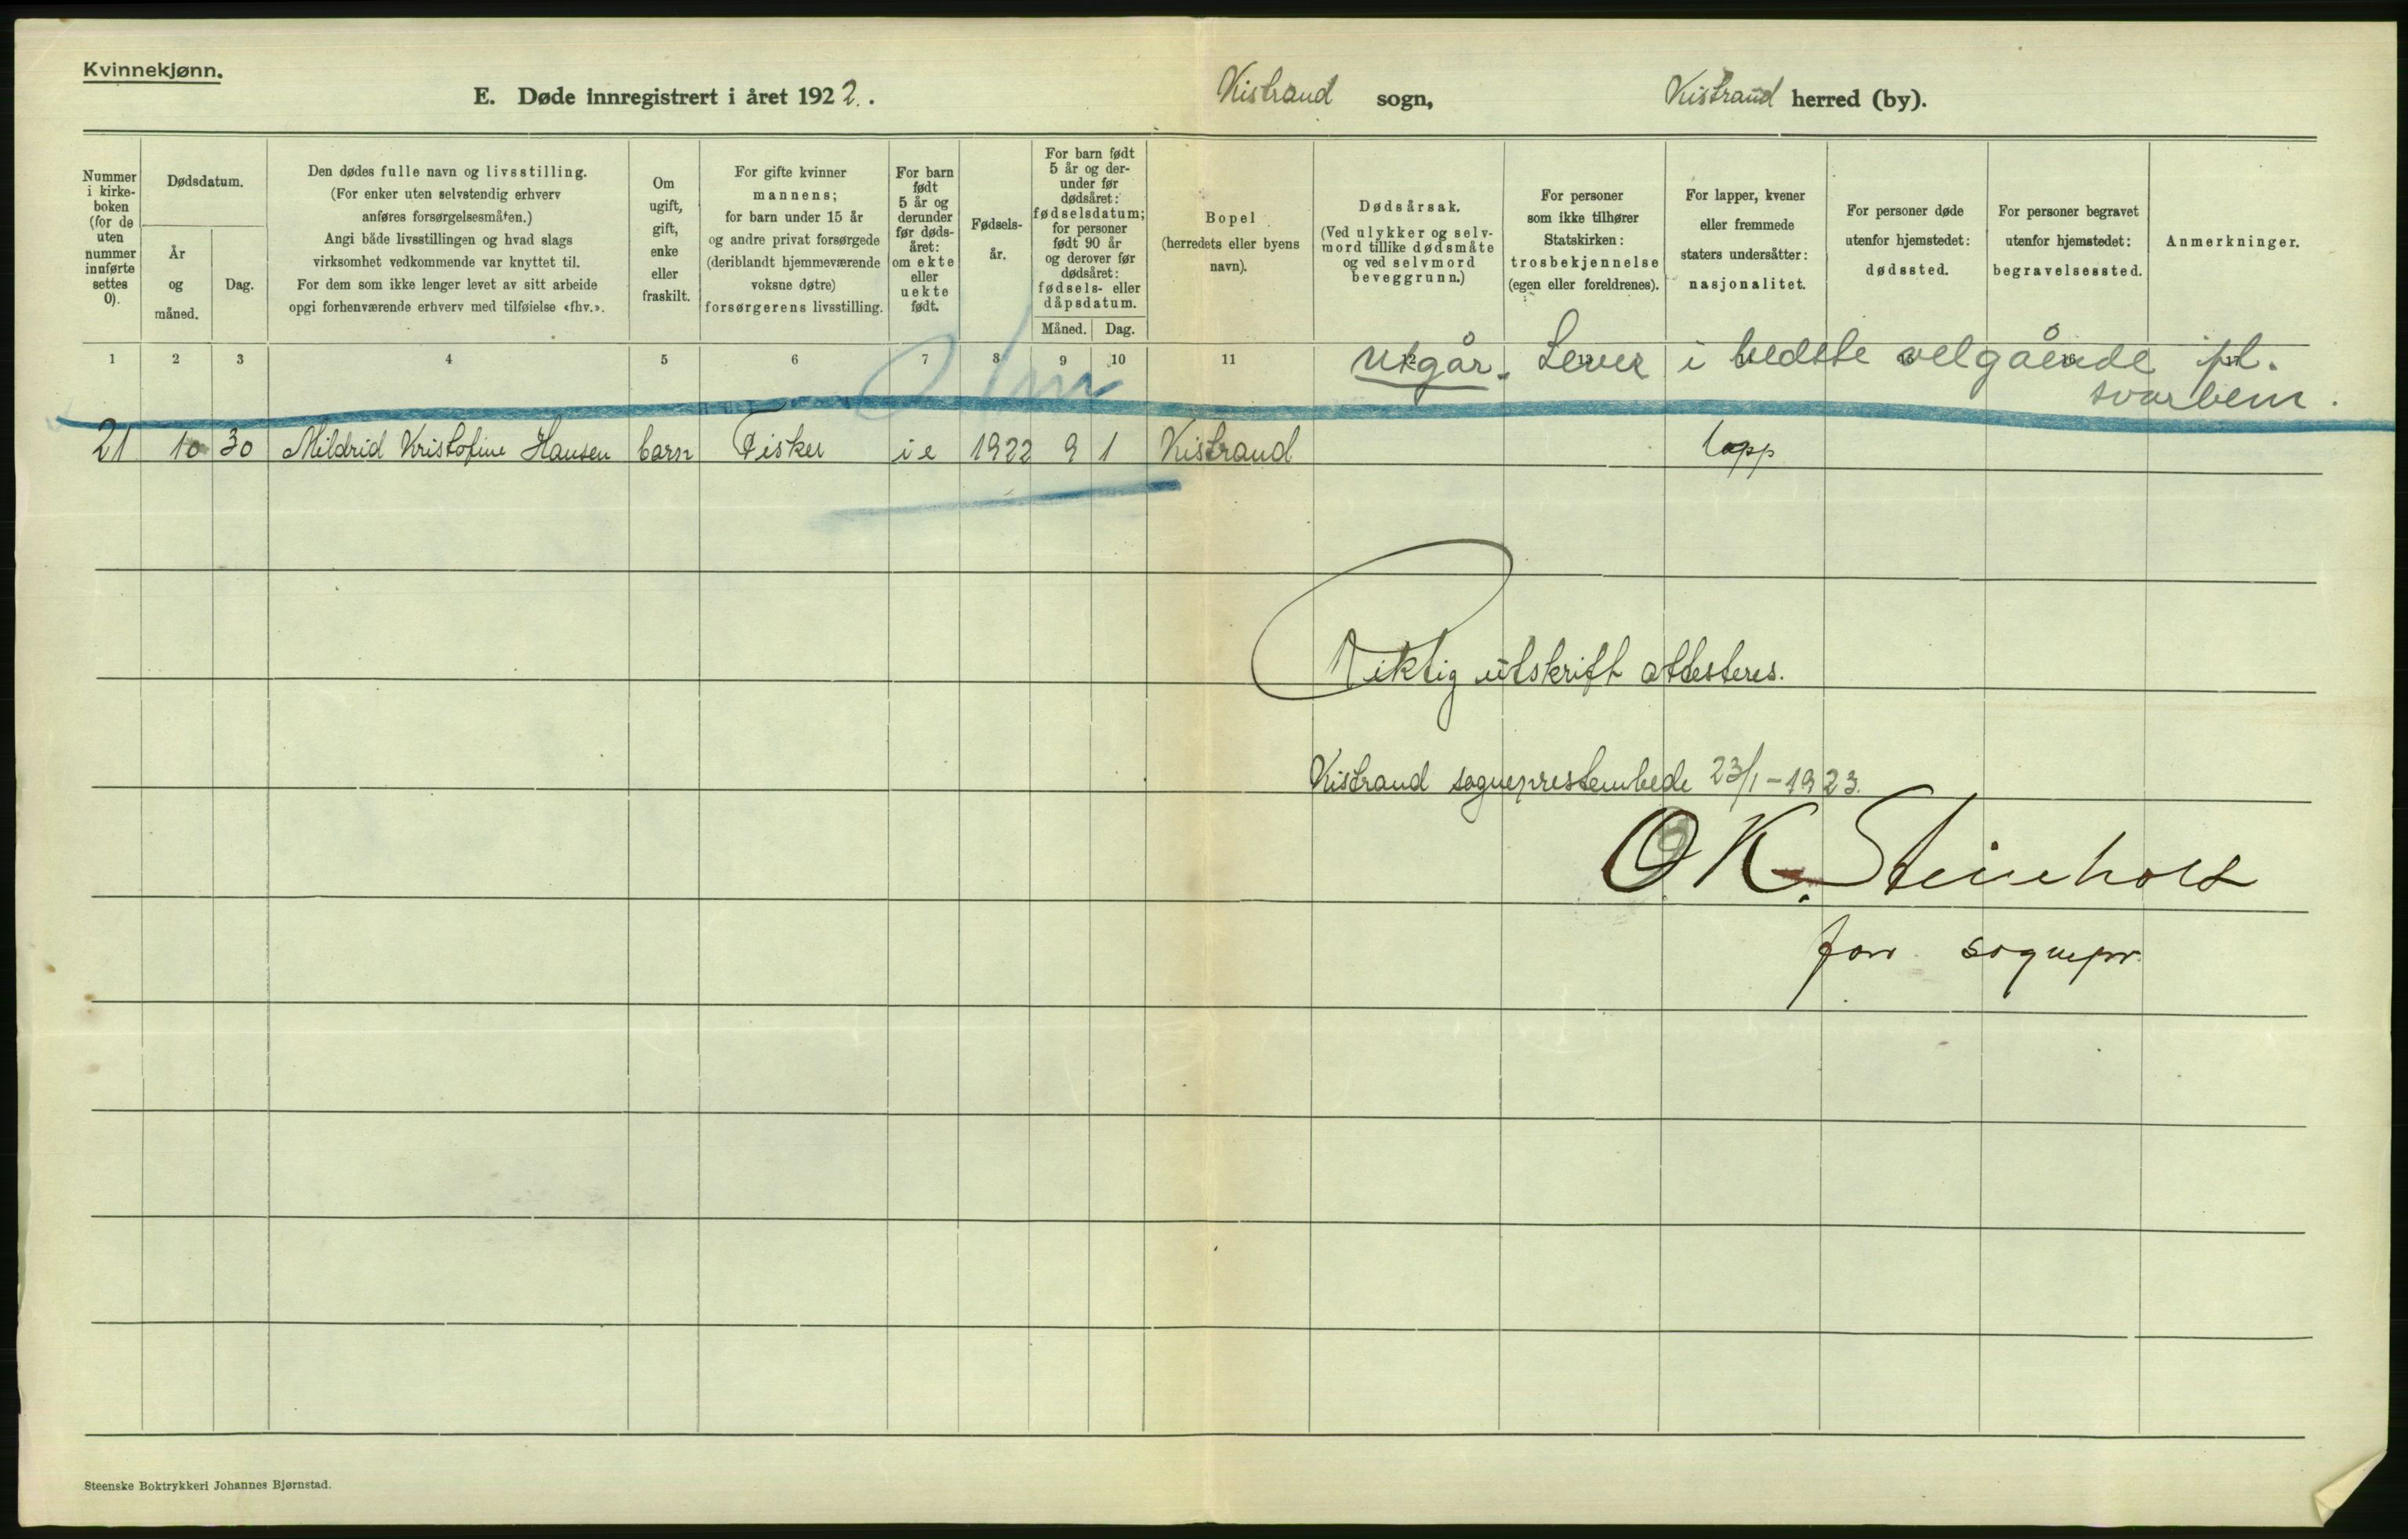 Kvinnekjønn.
E. Døde innregistrert i året 1922. Kistrand sogn, Kistrand herred (by).
Nummer i kirke-boken (for de uten nummer innførte settes 0).
Dødsdatum.
År og måned.
Dag.
Den dødes fulle navn og livsstilling.
(For enker uten selvstendig erhverv
anføres forsørgelsesmåten.)
Angi både livsstillingen og hvad slags
virksomhet vedkommende var knyttet til.
For dem som ikke lenger levet av sitt arbeide
opgi forhenværende erhverv med tilføielse «fhv.».
Om
ugift,
gift,
enke
eller
fraskilt.
For gifte kvinner
mannens;
for barn under 15 år
og andre privat forsørgede
(deriblandt hjemmeværende
voksne døtre)
forsørgerens livsstilling.
For barn
født
5 år og
derunder
før døds-
året:
om ekte
eller
uekte
født.
Fødsels-
år.
For barn født
5 år og der-
under før
dødsåret:
fødselsdatum;
for personer
født 90 år
og derover før
dødsåret:
fødsels- eller
dåpsdatum.
Måned. Dag.
Bopel
(herredets eller byens
navn).
Dødsårsak.
(Ved ulykker og selv-
mord tillike dødsmåte
og ved selvmord
beveggrunn.)
For personer
som ikke tilhører
Statskirken:
trosbekjennelse
(egen eller foreldrenes).
For lapper, kvener
eller fremmede
staters undersåtter:
nasjonalitet.
For personer døde
utenfor hjemstedet:
dødssted.
For personer begravet
utenfor hjemstedet:
begravelsessted.
Anmerkninger.
1 2 3 4 5 6 7 8 9 10 11 12 13 14 15 16 17
Utgår. Lever i bedste velgående ifl.
svarbem.
21 10 30 Mildrid Kristofine Hansen barn Fisker i e 1922 9 1 Kistrand lapp
Riktig utskrift attesteres.
Kistrand sogneprestembede 23/1-1923.
O. K. Steinholt
fow. sognepr.
Steenske Boktrykkeri Johannes Bjørnstad.